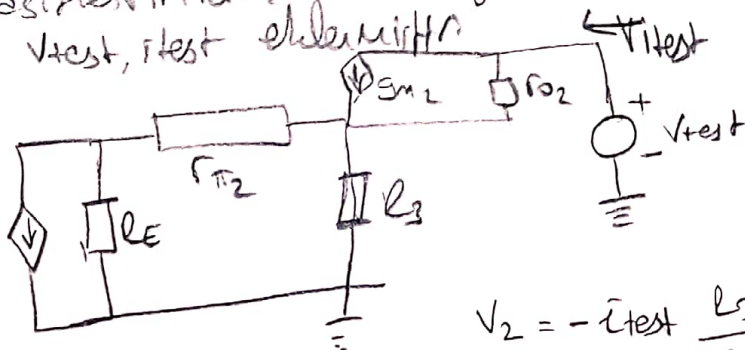 Vtest, itest eklenmiştir
itest
gm2
ro2
+
- Vtest
rπ2
RE
R3
V2 = - itest